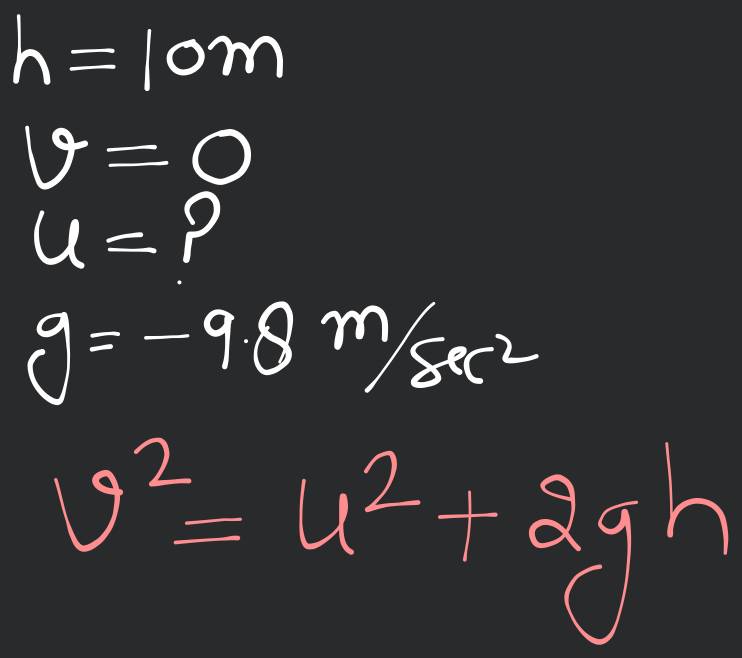 h = 10m
v = 0
u = ?
g = -9.8 m/sec²
v² = u² + 2gh